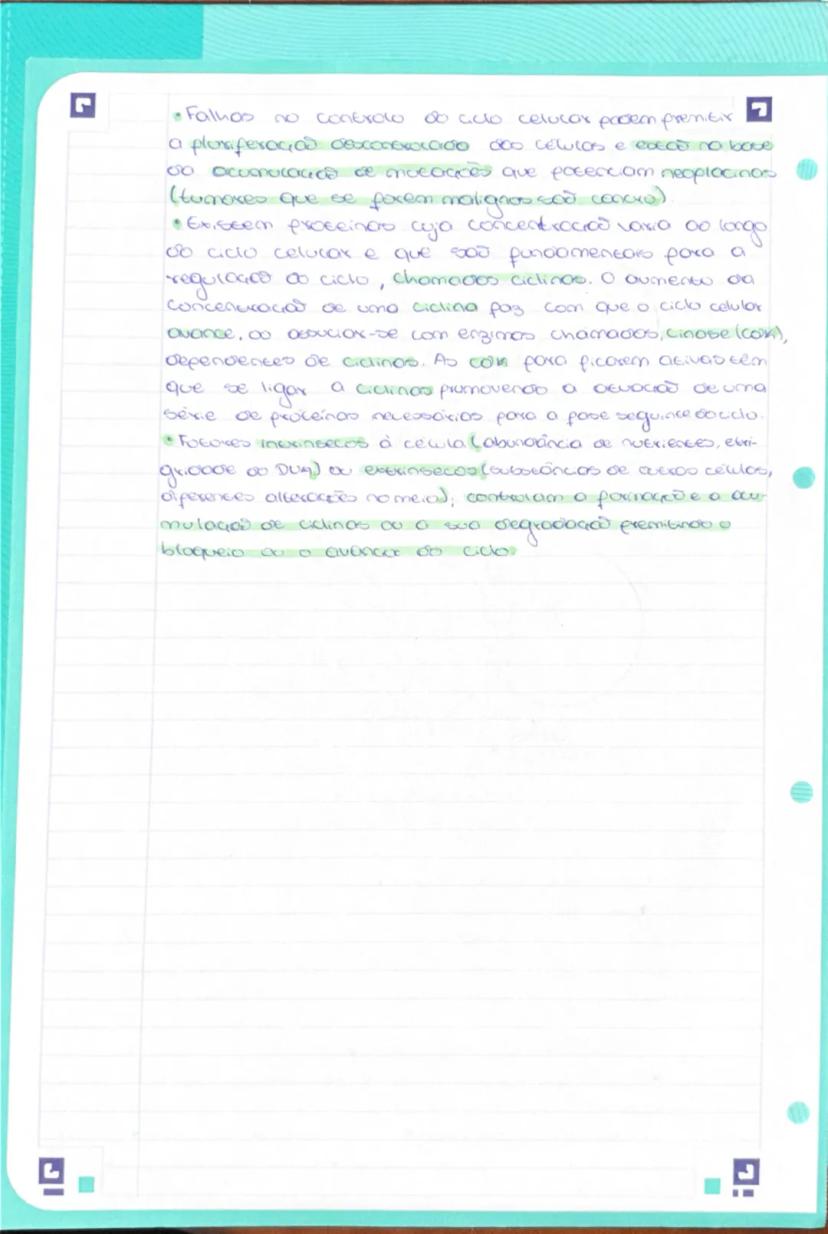 • Falhas no controlo do ciclo celular podem premitir
a pluriferação descontrolada das células e estão na base
da acumulação de mutações que potenciam neoplacinas
(tumores que se forem malignos são cancro)
• Existem proteínas cuja concentração varia ao longo
do ciclo celular e que são fundamentais para a
regulação do ciclo, chamadas ciclinas. O aumento da
concentração de uma ciclina faz com que o ciclo celular
avance, ao associar-se com enzimas chamadas, cinase
dependentes de ciclinas. As para ficarem ativas têm
que se ligar a ciclinas promovendo a ativação de uma
série de proteínas necessárias para a fase seguinte do ciclo.
• Fatores intrínsecos à célula (abundância de nutrientes,
do ou extrínsecos (substâncias de outras células,
diferentes alterações no meio), controlam a formação e a acu-
mulação de ciclinas ou a sua degradação premitindo o
bloqueio ou o avançar do ciclo.